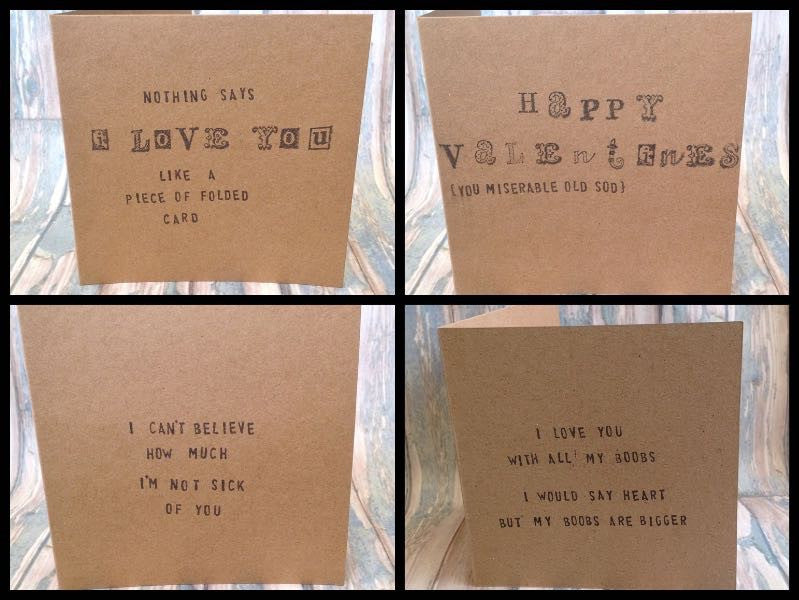 NOTHING SAYS
i LOVE YOU
LIKE A
PIECE OF FOLDED
CARD
HaPPY
VaLEntinES
{YOU MISERABLE OLD SOD}
I CAN'T BELIEVE
HOW MUCH
I'M NOT SICK
OF YOU
I LOVE YOU
WITH ALL MY BOOBS
I WOULD SAY HEART
BUT MY BOOBS ARE BIGGER